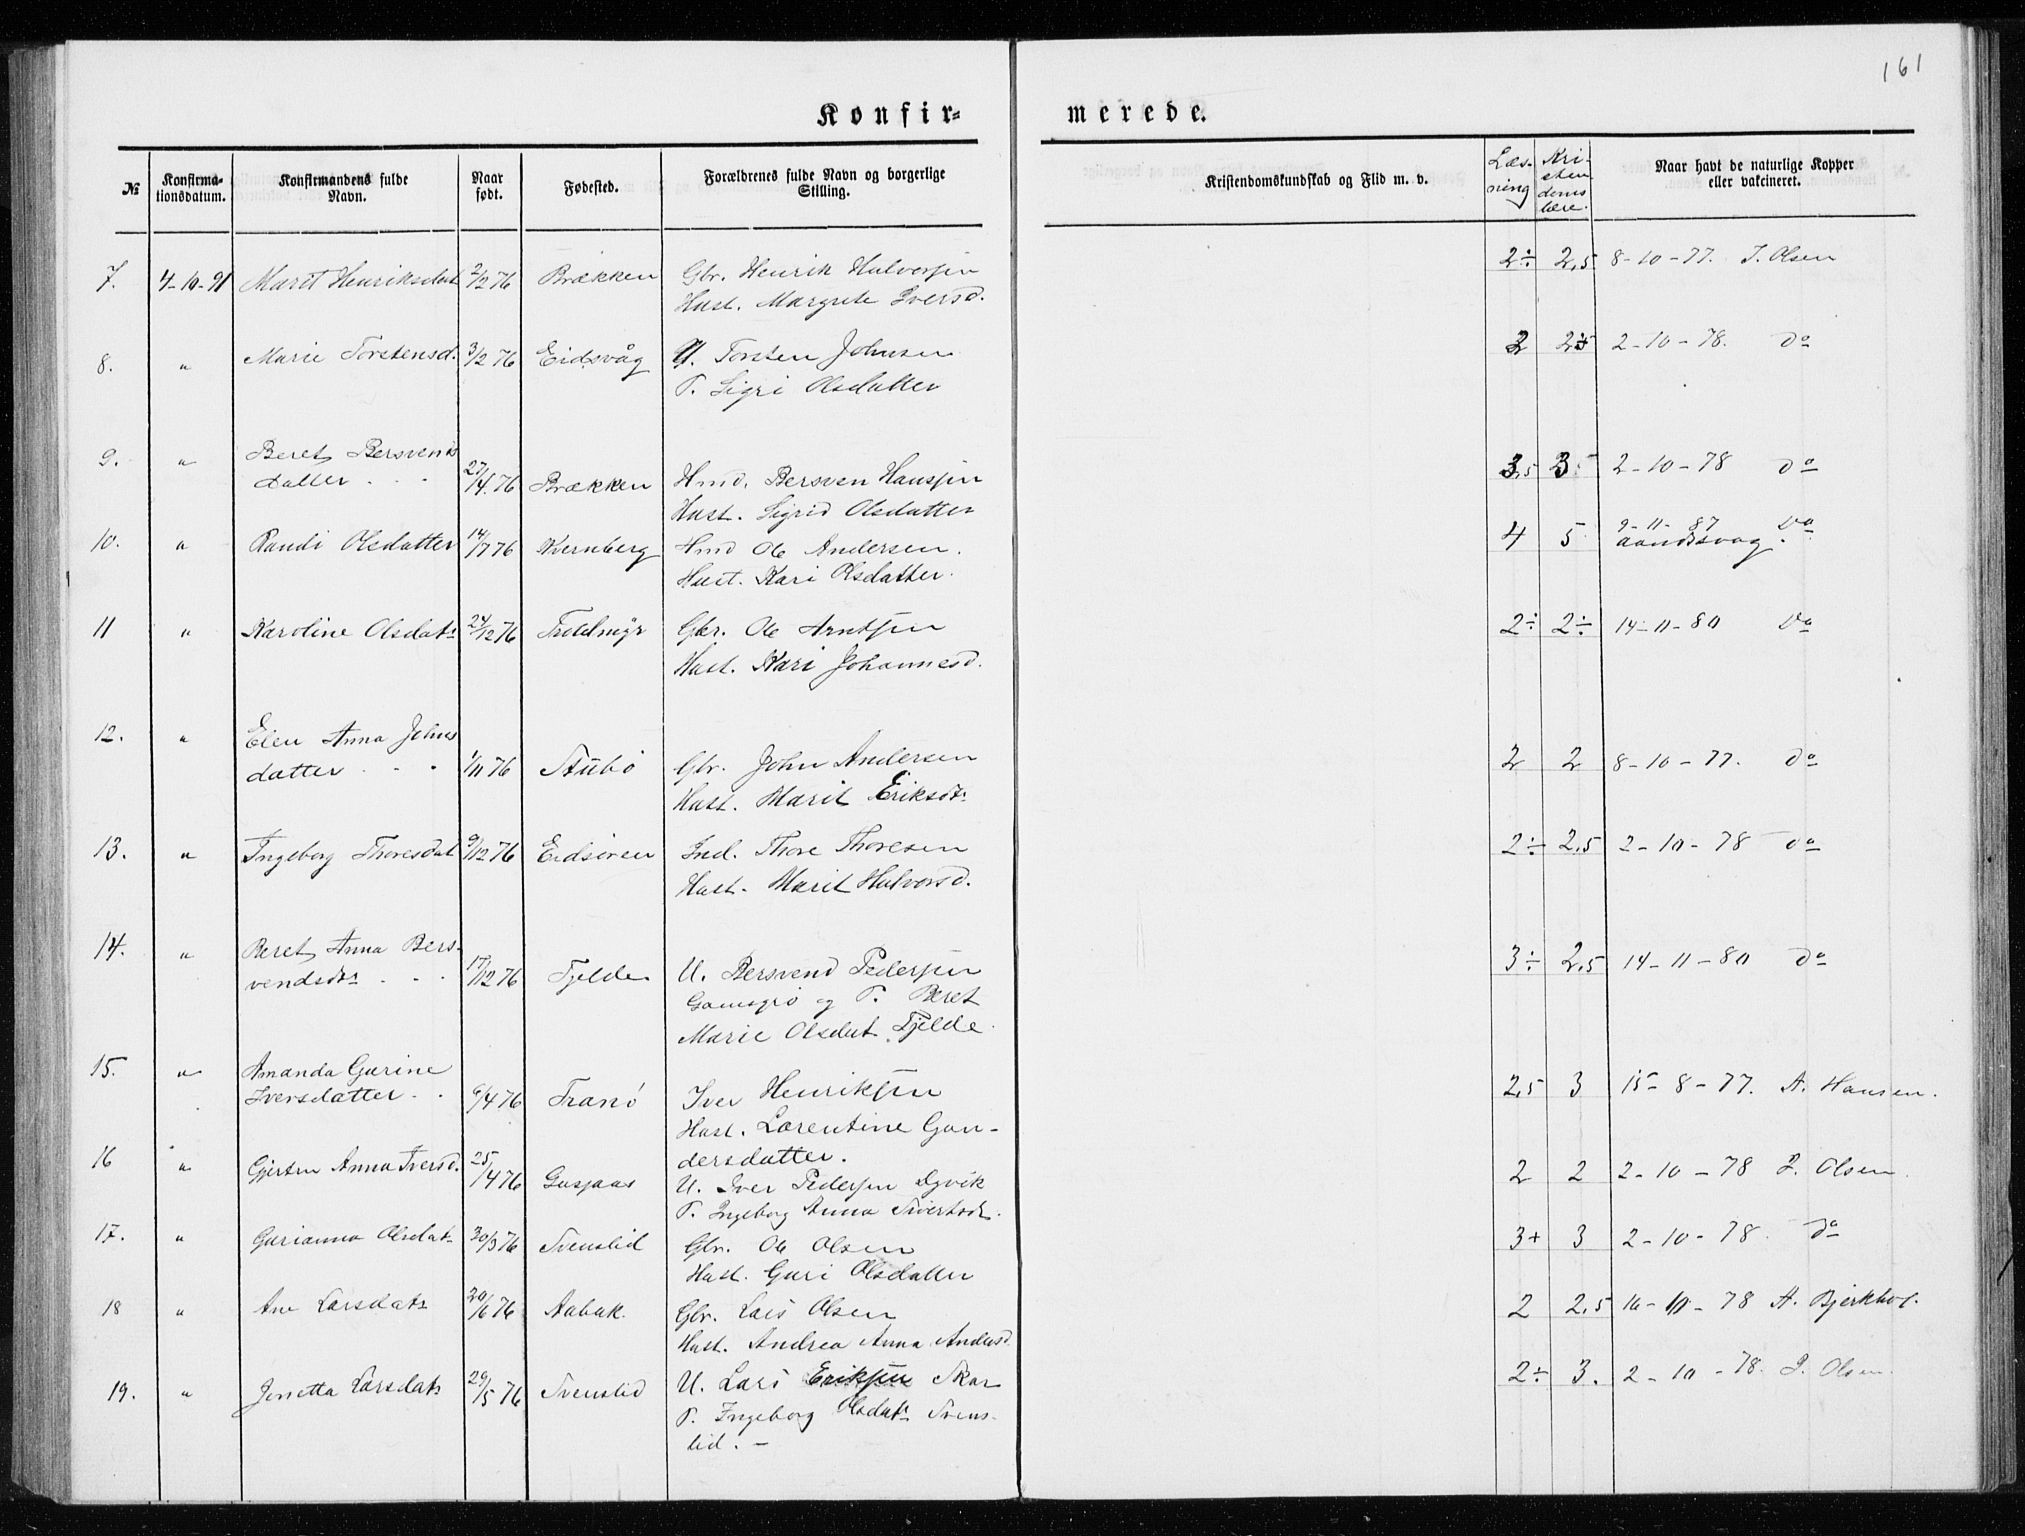 161
Konfir-
merede.
№
Konfirma-
tionsdatum.
Konfirmandens fulde
Navn.
Naar
født.
Fødested.
Forældrenes fulde Navn og borgerlige
Stilling.
Kristendomskundskab og Flid m. v.
Læs-
ning
Kri-
sten
doms
lære.
Naar havt de naturlige Kopper
eller vakcineret.
7. 4-10-91 Marit Henriksdat 2/2 76 Brækken Gbr. Henrik Halvorsen 2÷ 2,5 8-10-77. J. Olsen
Hust. Margrete Iversd.
8. " Marie Torstensd. 3/2 76 Eidsvåg U. Torsten Johnsen 2 2,5 2-10-78. do
P. Sigri Olsdatter
9. " Beret Bersvens
datter . . 27/4. 76 Brækken Hmd. Bersven Hansen 3,5 3 2-10-78 do
Hust. Sigrid Olsdatter
10. " Randi Olsdatter 14/7 76 Kvernberg Hmd Ole Andersen. 4 5 2-11-87 do
Hust. Kari Olsdatter.
11 " Karoline Olsdatr 24/12 76 Troldmyr Gbr. Ole Arntsen 2÷ 2÷ 14-11-80 do
Hust. Kari Johannesd.
12. " Elen Anna Johns
datter . . 1/11 76 Stubø Gbr. John Andersen 2 2 8-10-77. do
Hust. Marit Eriksdtr
13. " Ingeborg Thoresdat 9/12 76 Eidsøren Ind. Thore Thoresen 2÷ 2,5 2-10-78 do
Hust. Marit Halvorsd.
14. " Beret Anna Bers-
vendsdtr . . 17/12 76 Tjelde U. Bersvend Pedersen 3÷ 2,5 14-11-80 do
og P. Beret
Marie Olsdat. Tjelde.
15. " Amanda Gurine
Iversdatter . . 6/4 76 Tranø Iver Henriksen 2,5 3 15-8-77. A. Hansen.
Hust. Lorentine Gun-
dersdatter.
16 " Gjertru Anna Iversd. 25/4 76 Gusjaas U. Iver Pedersen Dyvik 2 2 2-10-78 J. Olsen.
P. Ingeborg Anna Sivertsdr.
17. " Gurianna Olsdatr 30/3 76 Svenslid Gbr. Ole Olsen 3+ 3 2-10-78. do
Hust. Guri Olsdatter
18 " Ane Larsdatr 20/6 76 Aabak. Gbr. Lars Olsen 2 2,5 16-10-78 A. Bjerkhol.
Hust. Andrea Anna Andersd
19. " Jenetta Larsdatr 29/5 76 Svenslid U. Lars Eriksen Skar 2÷ 3. 2-10-78. J. Olsen.
P. Ingeborg Olsdatr Svens-
lid. –